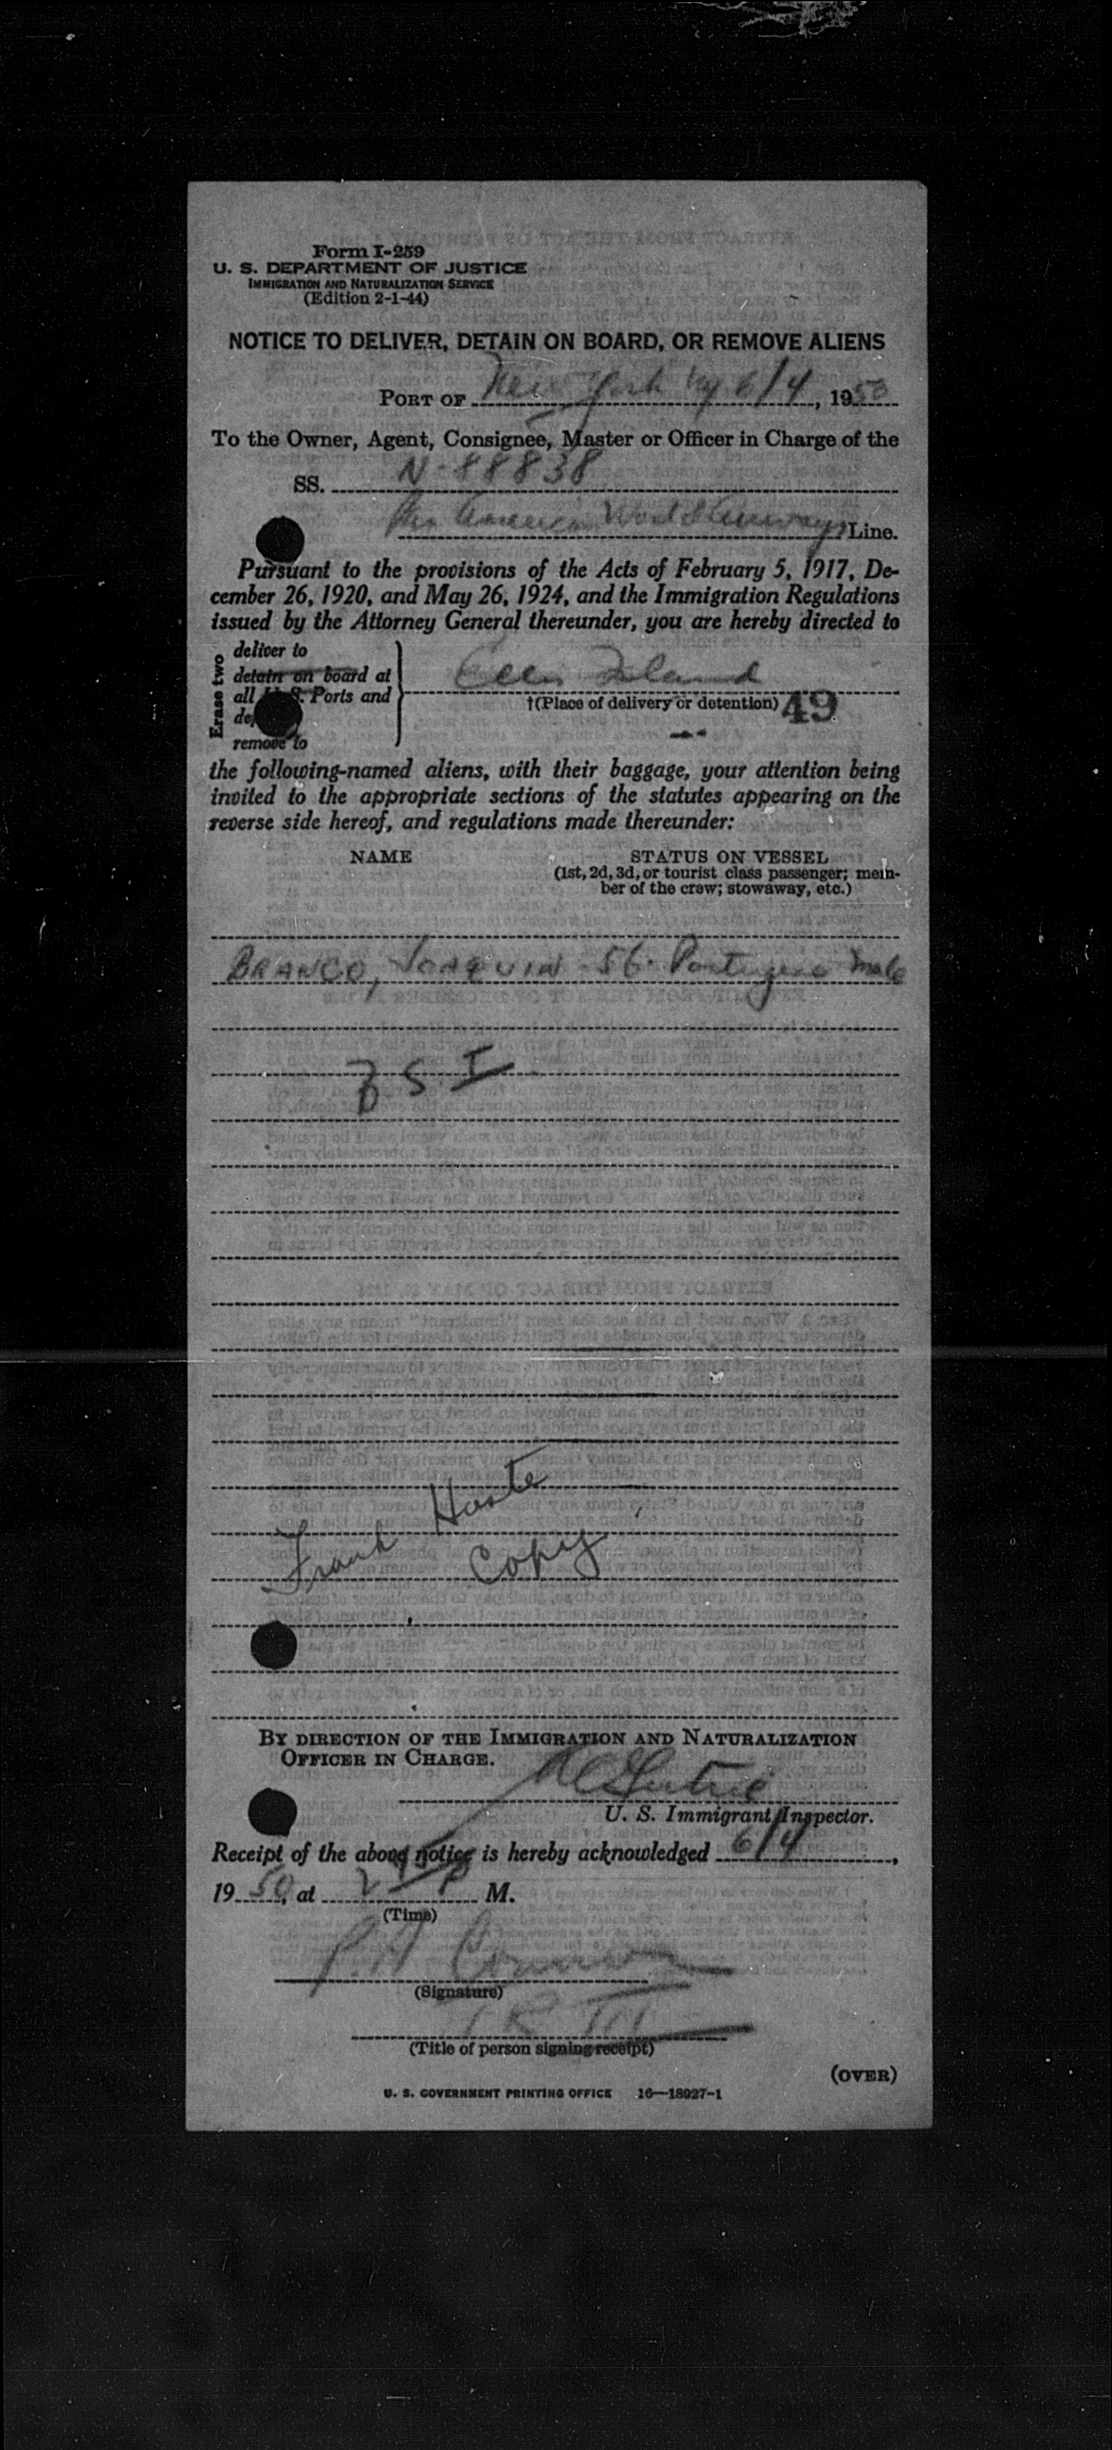 Form I-259
U. S. DEPARTMENT OF JUSTICE
IMMIGRATION AND NATURALIZATION SERVICE
(Edition 2-1-44)
NOTICE TO DELIVER, DETAIN ON BOARD, OR REMOVE ALIENS
PORT OF New York Ny 6/4, 1950
To the Owner, Agent, Consignee, Master or Officer in Charge of the
SS. N-88838
Pan American World Airways Line.
Pursuant to the provisions of the Acts of February 5, 1917, De-
cember 26, 1920, and May 26, 1924, and the Immigration Regulations
issued by the Attorney General thereunder, you are hereby directed to
Erase two
deliver to
detain on board at
all U.S. Ports and
remove to
Ellis Island
†(Place of delivery or detention) 49
the following-named aliens, with their baggage, your attention being
invited to the appropriate sections of the statutes appearing on the
reverse side hereof, and regulations made thereunder:
NAME STATUS ON VESSEL
(1st, 2d, 3d, or tourist class passenger; mem-
ber of the crew; stowaway, etc.)
BRANCO, JOAQUIN - 56 - Portugese male
S I
Frank Haste
Copy
BY DIRECTION OF THE IMMIGRATION AND NATURALIZATION
OFFICER IN CHARGE.
U. S. Immigrant Inspector.
Receipt of the above notice is hereby acknowledged 6/4,
1950, at P M.
(Time)
P.A.
(Signature)
(Title of person signing receipt)
(OVER)
U. S. GOVERNMENT PRINTING OFFICE 16—18027-1